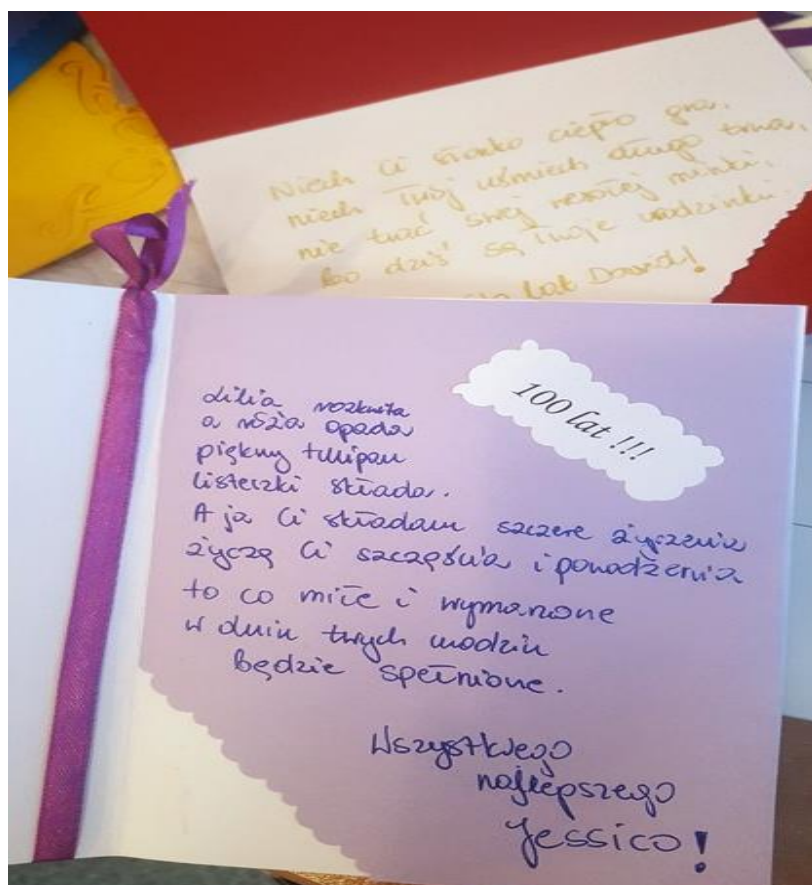 Niech Ci słonko ciepło gra,
niech Twój uśmiech długo trwa,
nie trać swej wesołej minki,
bo dziś są Twoje urodzinki.
lat Dawid!
100 lat !!!
Lilia rozkwita
a róża opada
piękny tulipan
listeczki składa.
A ja Ci składam szczere życzenia
życzę Ci szczęścia i powodzenia
to co miłe i wymarzone
w dniu twych urodzin
będzie spełnione.
Wszystkiego
najlepszego
Jessico!